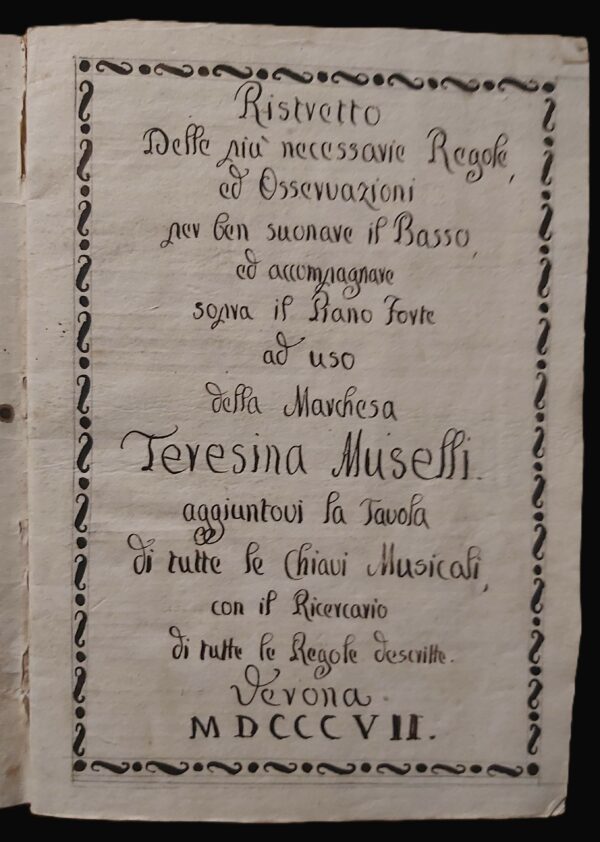 Ristretto
Delle più necessarie Regole,
ed Osservazioni
per ben suonare il Basso,
ed accompagnare
sopra il Piano Forte
ad uso
della Marchesa
Teresina Muselli.
aggiuntovi la Tavola
di tutte le Chiavi Musicali,
con il Ricercario
di tutte le Regole descritte.
Verona.
MDCCCVII.